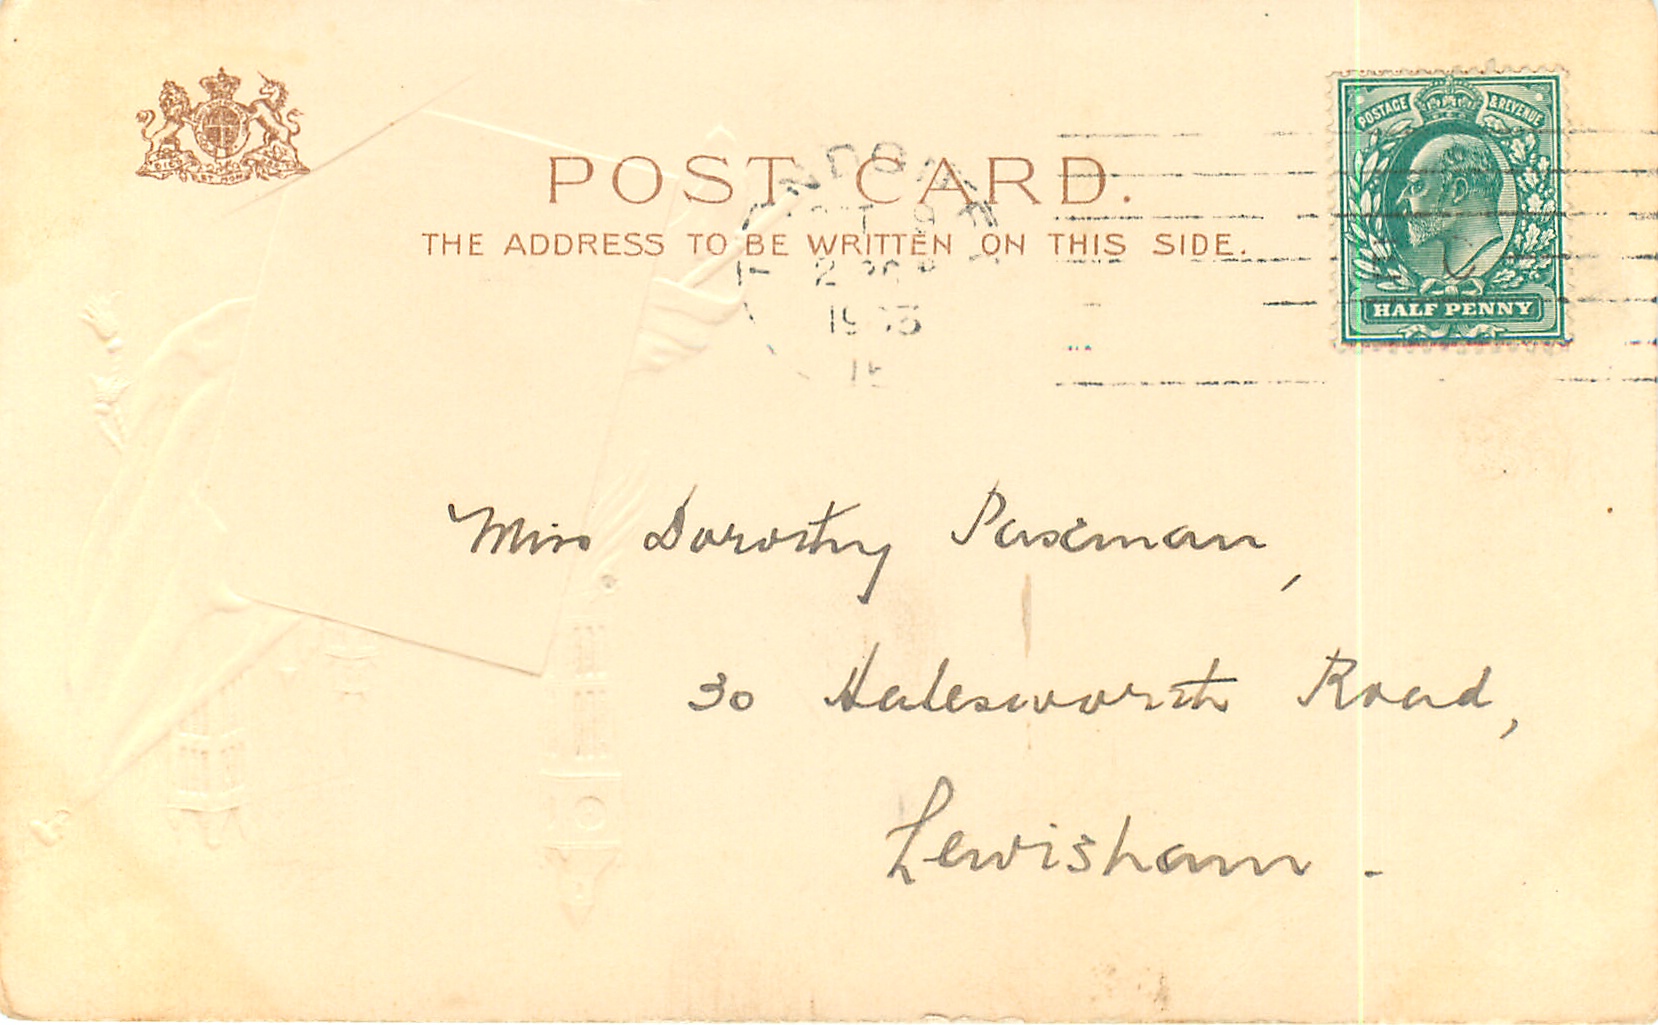 POST CARD.
THE ADDRESS TO BE WRITTEN ON THIS SIDE.
POSTAGE & REVENUE
HALF PENNY
Miss Dorothy
30 Halesworth Road,
Lewisham.